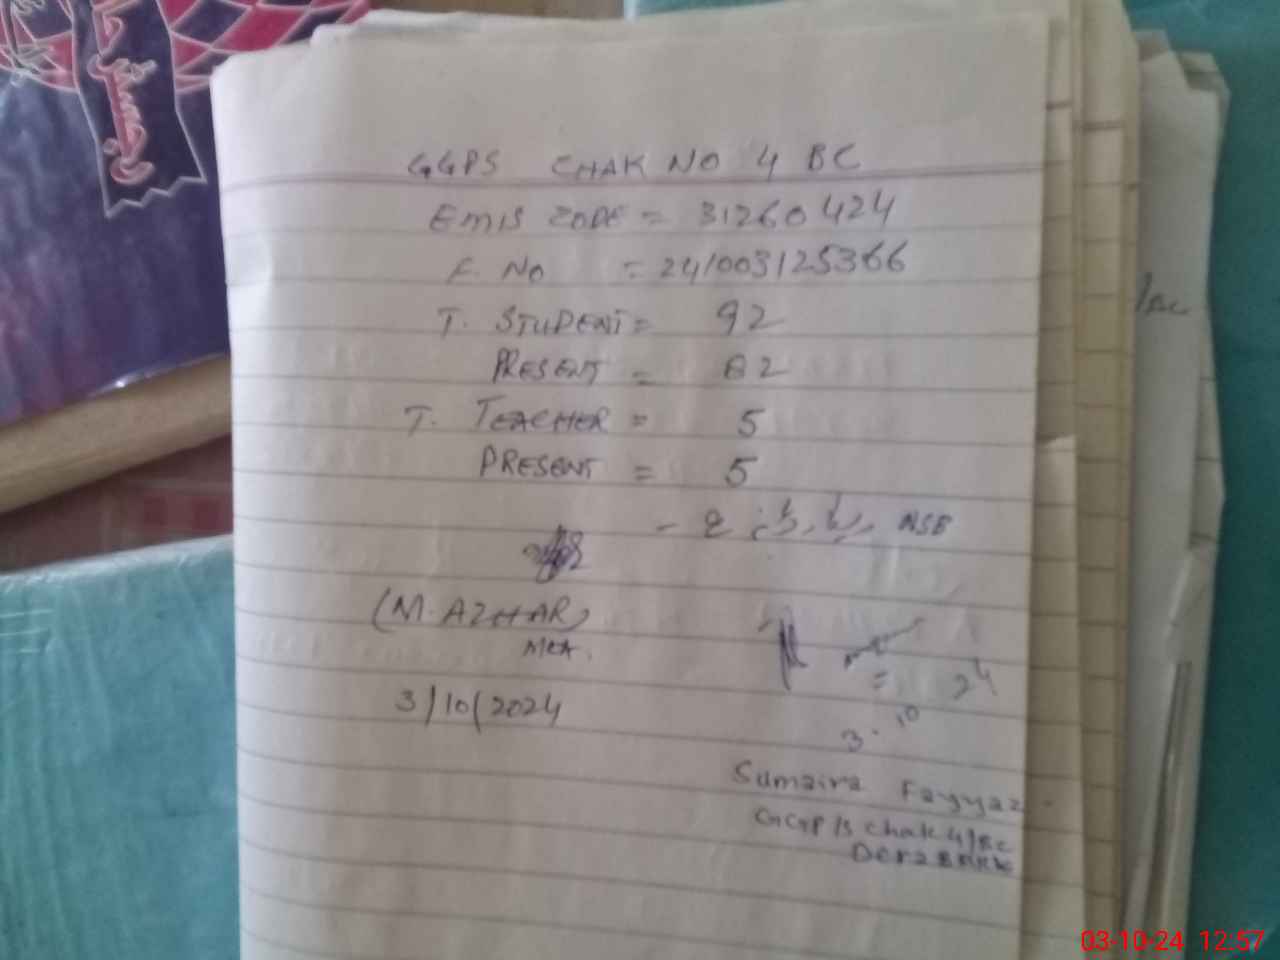 GGPS CHAK NO 4 BC
EMIS CODE = 31260424
F. NO = 241003125366
T. STUDENT = 92
PRESENT = 82
T. TEACHER = 5
PRESENT = 5
NSB
(M. AZHAR)
MEA.
3/10/2024
3.10 24
Sumaira Fayyaz
GGP/S chak 4/BC
Dera BAKHA
/BC
03-10-24 12:57